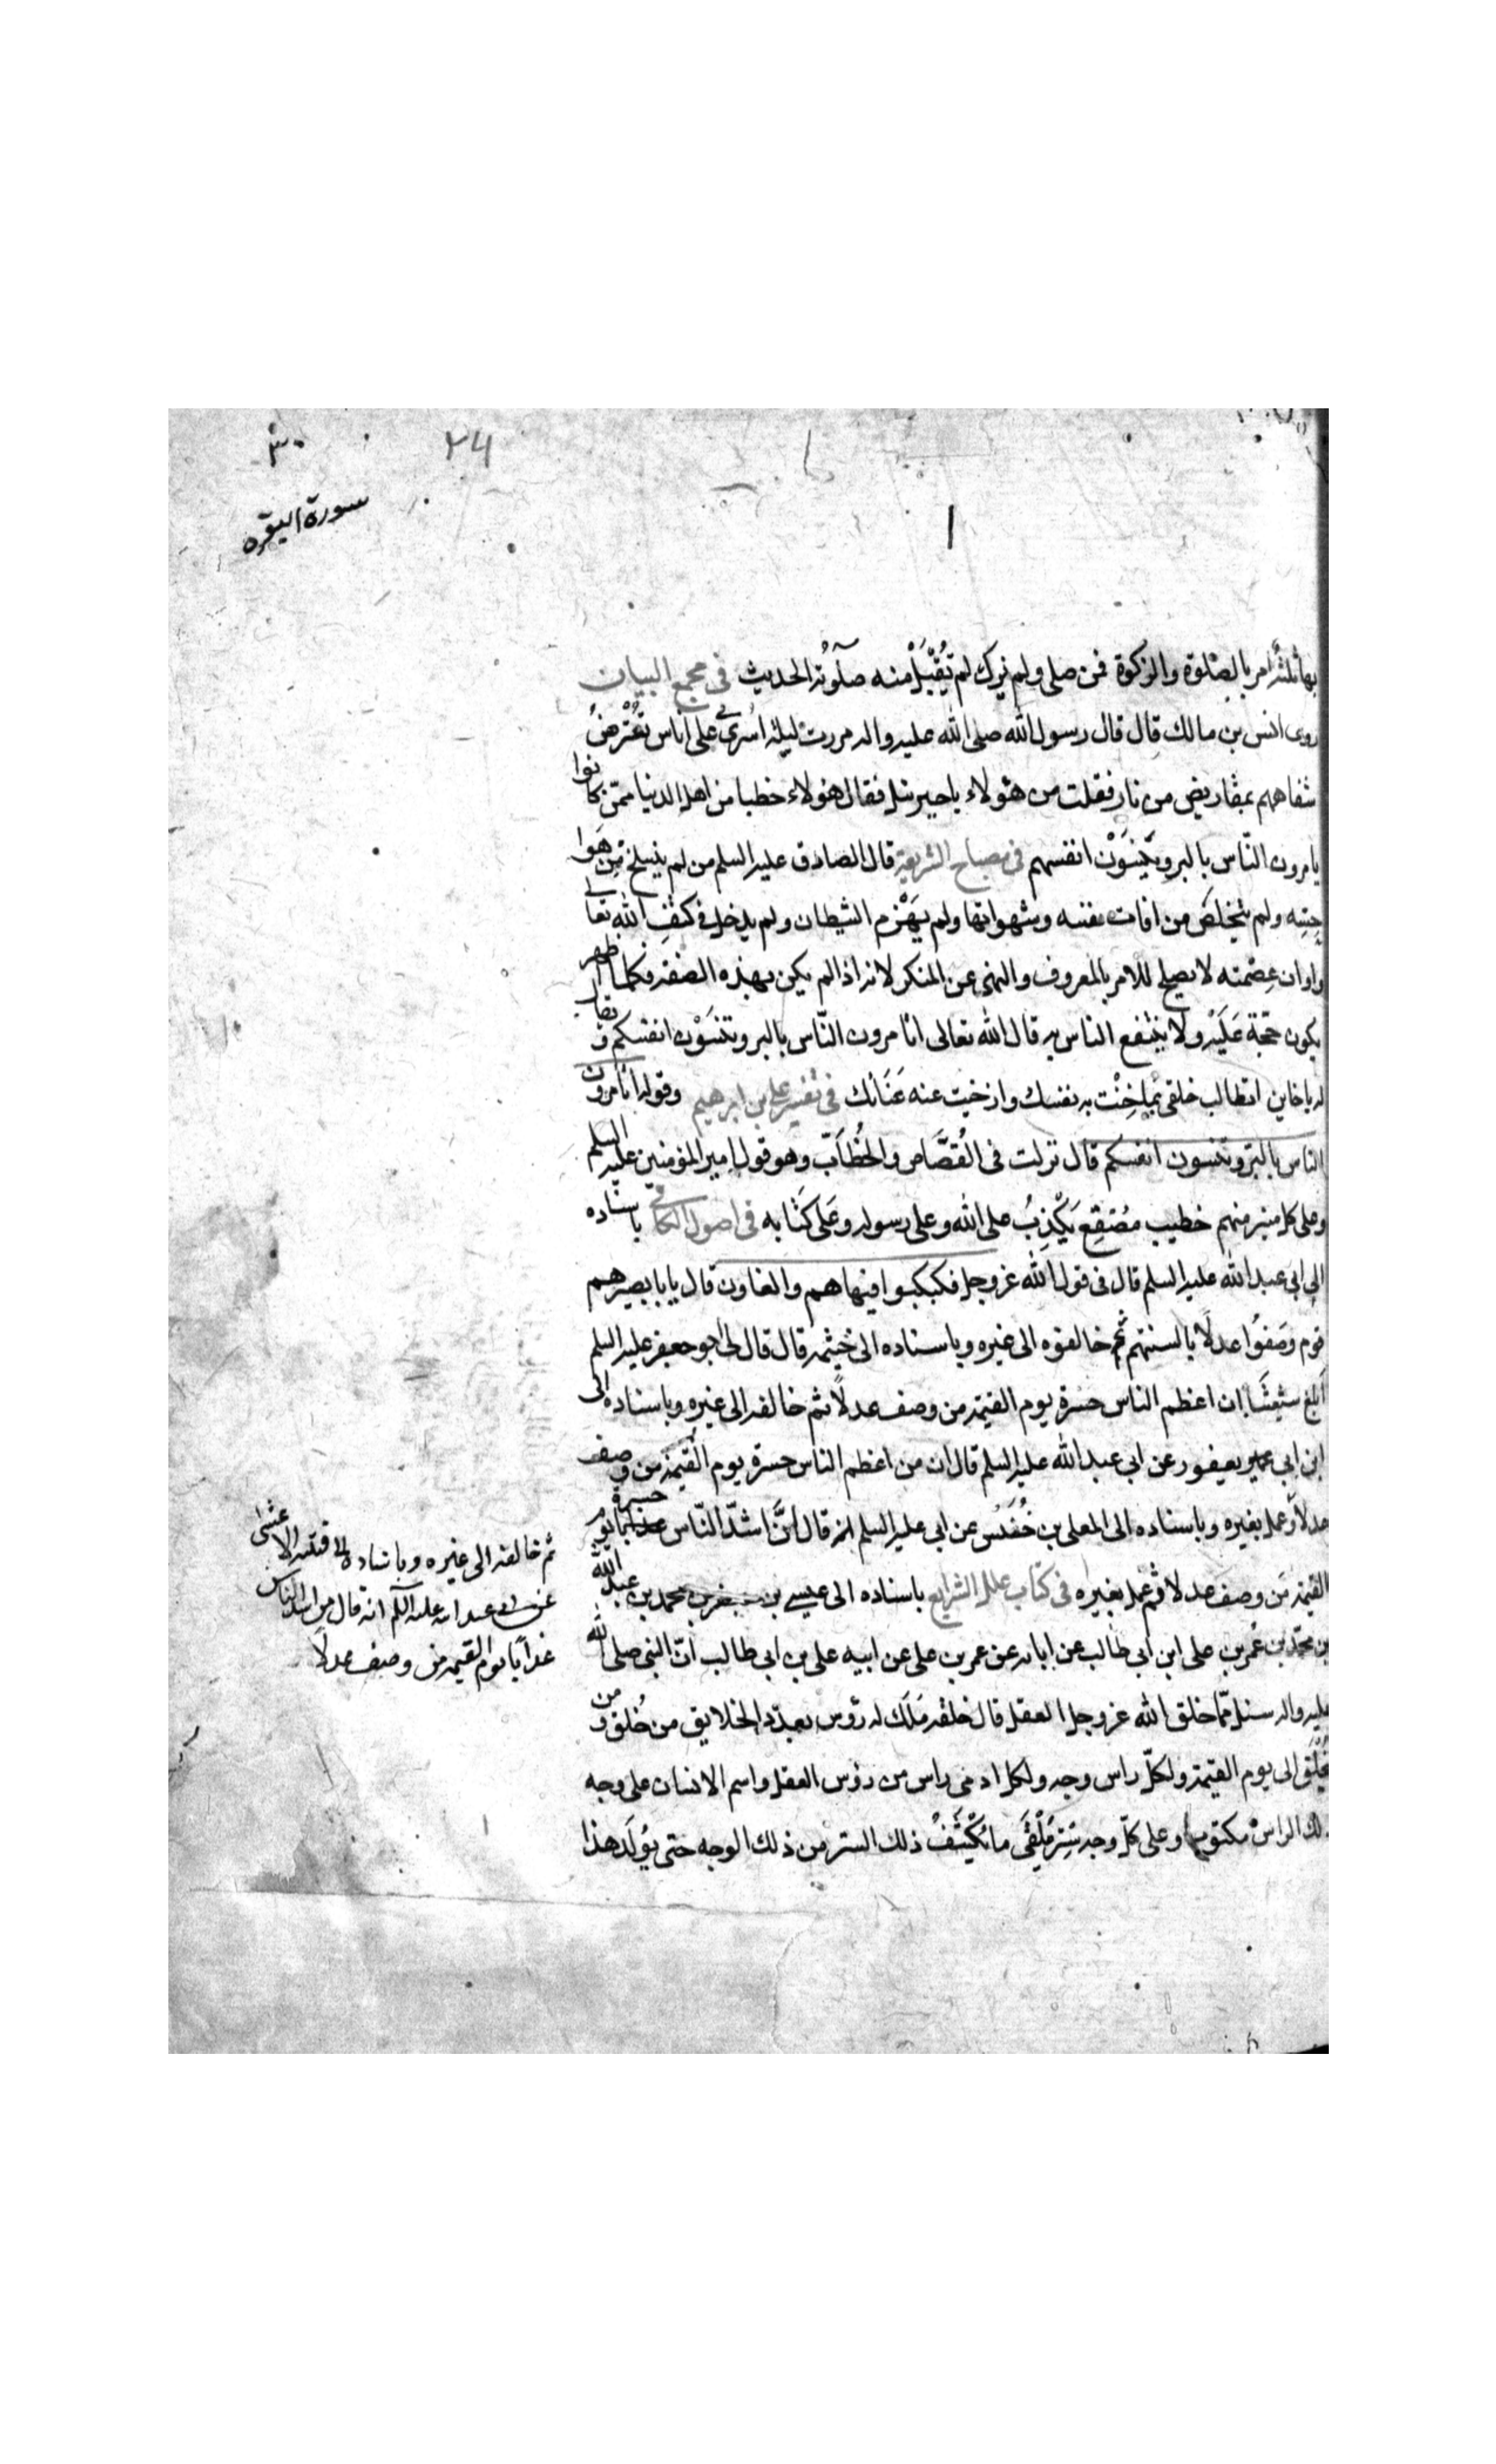 ٣٠
٢٤
سورة البقره
١
بها ثلثة امر بالصّلوة والزكوة فمن صلى ولم يزك لم تُقْبَلْ منه صلوته الحديث في مجمع البيان
روى انس بن مالك قال قال رسول الله صلى الله عليه واله مررت ليلة اُسْرِيَ بي على اناس تُقْرَضُ
شفاههم بمقاريض من نار فقلت من هؤلاء يا جبرئيل فقال هؤلاء خطبا من اهل الدنيا ممّن كانوا
يامرون النّاس بالبر وَيَنْسَوْن انفسهم في مصباح الشريعة قال الصادق عليه السلم من لم ينسلخ مِن هَوا
جسه ولم يتخلّص من افات نفسه وشهواتها ولم يَهْزِم الشيطان ولم يدخل في كنفِ الله تعالى
واوان عِصْمته لا يصلح للامر بالمعروف والنهى عن المنكر لانه اذا لم يكن بهذه الصفة فكلما اظهر
يكون حجّة عَلَيْه ولا ينتفع الناس به قال الله تعالى اتأمرون النّاس بالبر وتنسَوْن انفسكم ويقال
له يا خاين اتطالب خلقي بما خُنْت به نفسك وارخيت عنه عَنَانَك في تفسير علي بن ابرهيم وقوله اتأمرون
الناس بالبرّ وتنسون انفسكم قال نزلت في القُصَّاص والخُطَّاب وهو قول امير المؤمنين عليه السلم
وعلى كل منبر منهم خطيب مصْقِع يَكْذِبُ على الله وعلى رسوله وعَلى كتابه في اصول الكافي باسناده
الى ابى عبد الله عليه السلم قال في قول الله عز وجل فكبكبوا فيها هم والغاون قال يا با بصير هم
قوم وصَفُوا عدلًا بالسنتهم ثم خالفوه الى غيره وباسناده الى خيثمه قال قال لي ابو جعفر عليه السلم
اَبلغ شيعَتَنا ان اعظم الناس حسرة يوم القيمة من وصف عدلًا ثم خالفه الى غيره وباسناده الى
ابن ابي يعفور عن ابي عبد الله عليه السلم قال ان من اعظم الناس حسرة يوم القيمة من وصف
عدلًا وعمل بغيره وباسناده الى المعلى بن خُنَيْس عن ابي عليه السلم انه قال انَّ اشدّ النّاس حسرة يوم
القيمة مَن وصفَ عدلا ثم عمل بغيره في كتاب علل الشرايع باسناده الى عيسى بن جعفر بن محمد بن عبد الله
بن محمّد بن عُمر بن على ابن ابي طالب عن ابائه عن عمر بن على عن ابيه على بن ابى طالب انّ النبى صلى الله
عليه واله سئل ممّا خلق الله عز وجل العقل قال خلقه مَلَك له رؤس بعدّد الخلايق من خُلق ومن
يُخْلَق الى يوم القيمة ولكلّ راس وجه ولكل ادمى راس من رؤس العقل واسم الانسان على وجه
ذلك الراس مكتوب وعلى كلّ وجه سِتر مُلْقًى ما يُكْشَفُ ذلك الستر من ذلك الوجه حتى يُولَد هذا
ثم خالفه الى غيره وباسناده الى قتيبه الاعشى
عن ابى عبد الله عليه السلم انه قال من اشد الناس
عذابًا يوم القيمه من وصف عدلًا